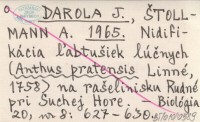 DAROLA J., ŠTOLL-
MANN A. 1965. Nidifi-
kácia ľabtušiek lúčnych
(Anthus pratensis Linné,
1758) na rašelinisku Rudné
pri Suchej Hore. Biológia
20, nr 8: 627-630.